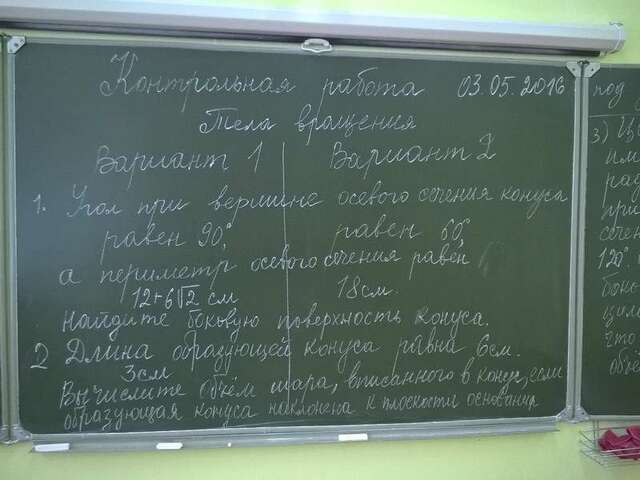 Контрольная работа 03.05.2016
Тела вращения
Вариант 1 Вариант 2
1. Угол при вершине осевого сечения конуса
равен 90°, равен 60°,
а периметр осевого сечения равен
12+6√2 см 18 см.
Найдите боковую поверхность конуса.
2 Длина образующей конуса равна 6 см.
3 см
Вычислите объём шара, вписанного в конус, если
образующая конуса наклонена к плоскости основания
под
3)
120°.
что